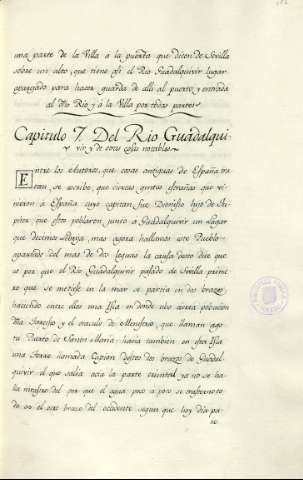 una parte de la Villa à la puerta que dicen de Sevilla
sobre un alto, que tiene allí el Rio Guadalquivir lugar
aparejado para hacer guarda de allí al puerto, y entrada
al dho Rio, y á la Villa por todas partes
Capitulo 7. Del Rio Guadalqui
vir, y de otras cosas notables
Entre los Autores, que cosas antiguas de España tra
tan, se escribe, que ciertas gentes estrañas que vi
nieron a España cuyo capitan fue Dionisio hijo de
que esto poblaron junto a Guadalquivir un Lugar
que decimos Lebrija, mas agora hallamos este Pueblo
apartado del mar de dos leguas la causa desto dice que
es por que el Rio Guadalquivir pasado de Sevilla prime
ro que se metiese en la mar se partia en dos brazos,
haciendo entre ellos una Isla en donde ubo cierta poblacion
dha y el oraculo de Menesteo, que llaman ago
ra Puerto de Santa Maria havia tambien en esta Isla
una destos dos brazos de Guadal
quivir el que salia acia la parte oriental ya no se ha
lla rastro del por que el agua poco a poco se trasbertio to
da en el otro brazo del occidente segun que hoy dia pa